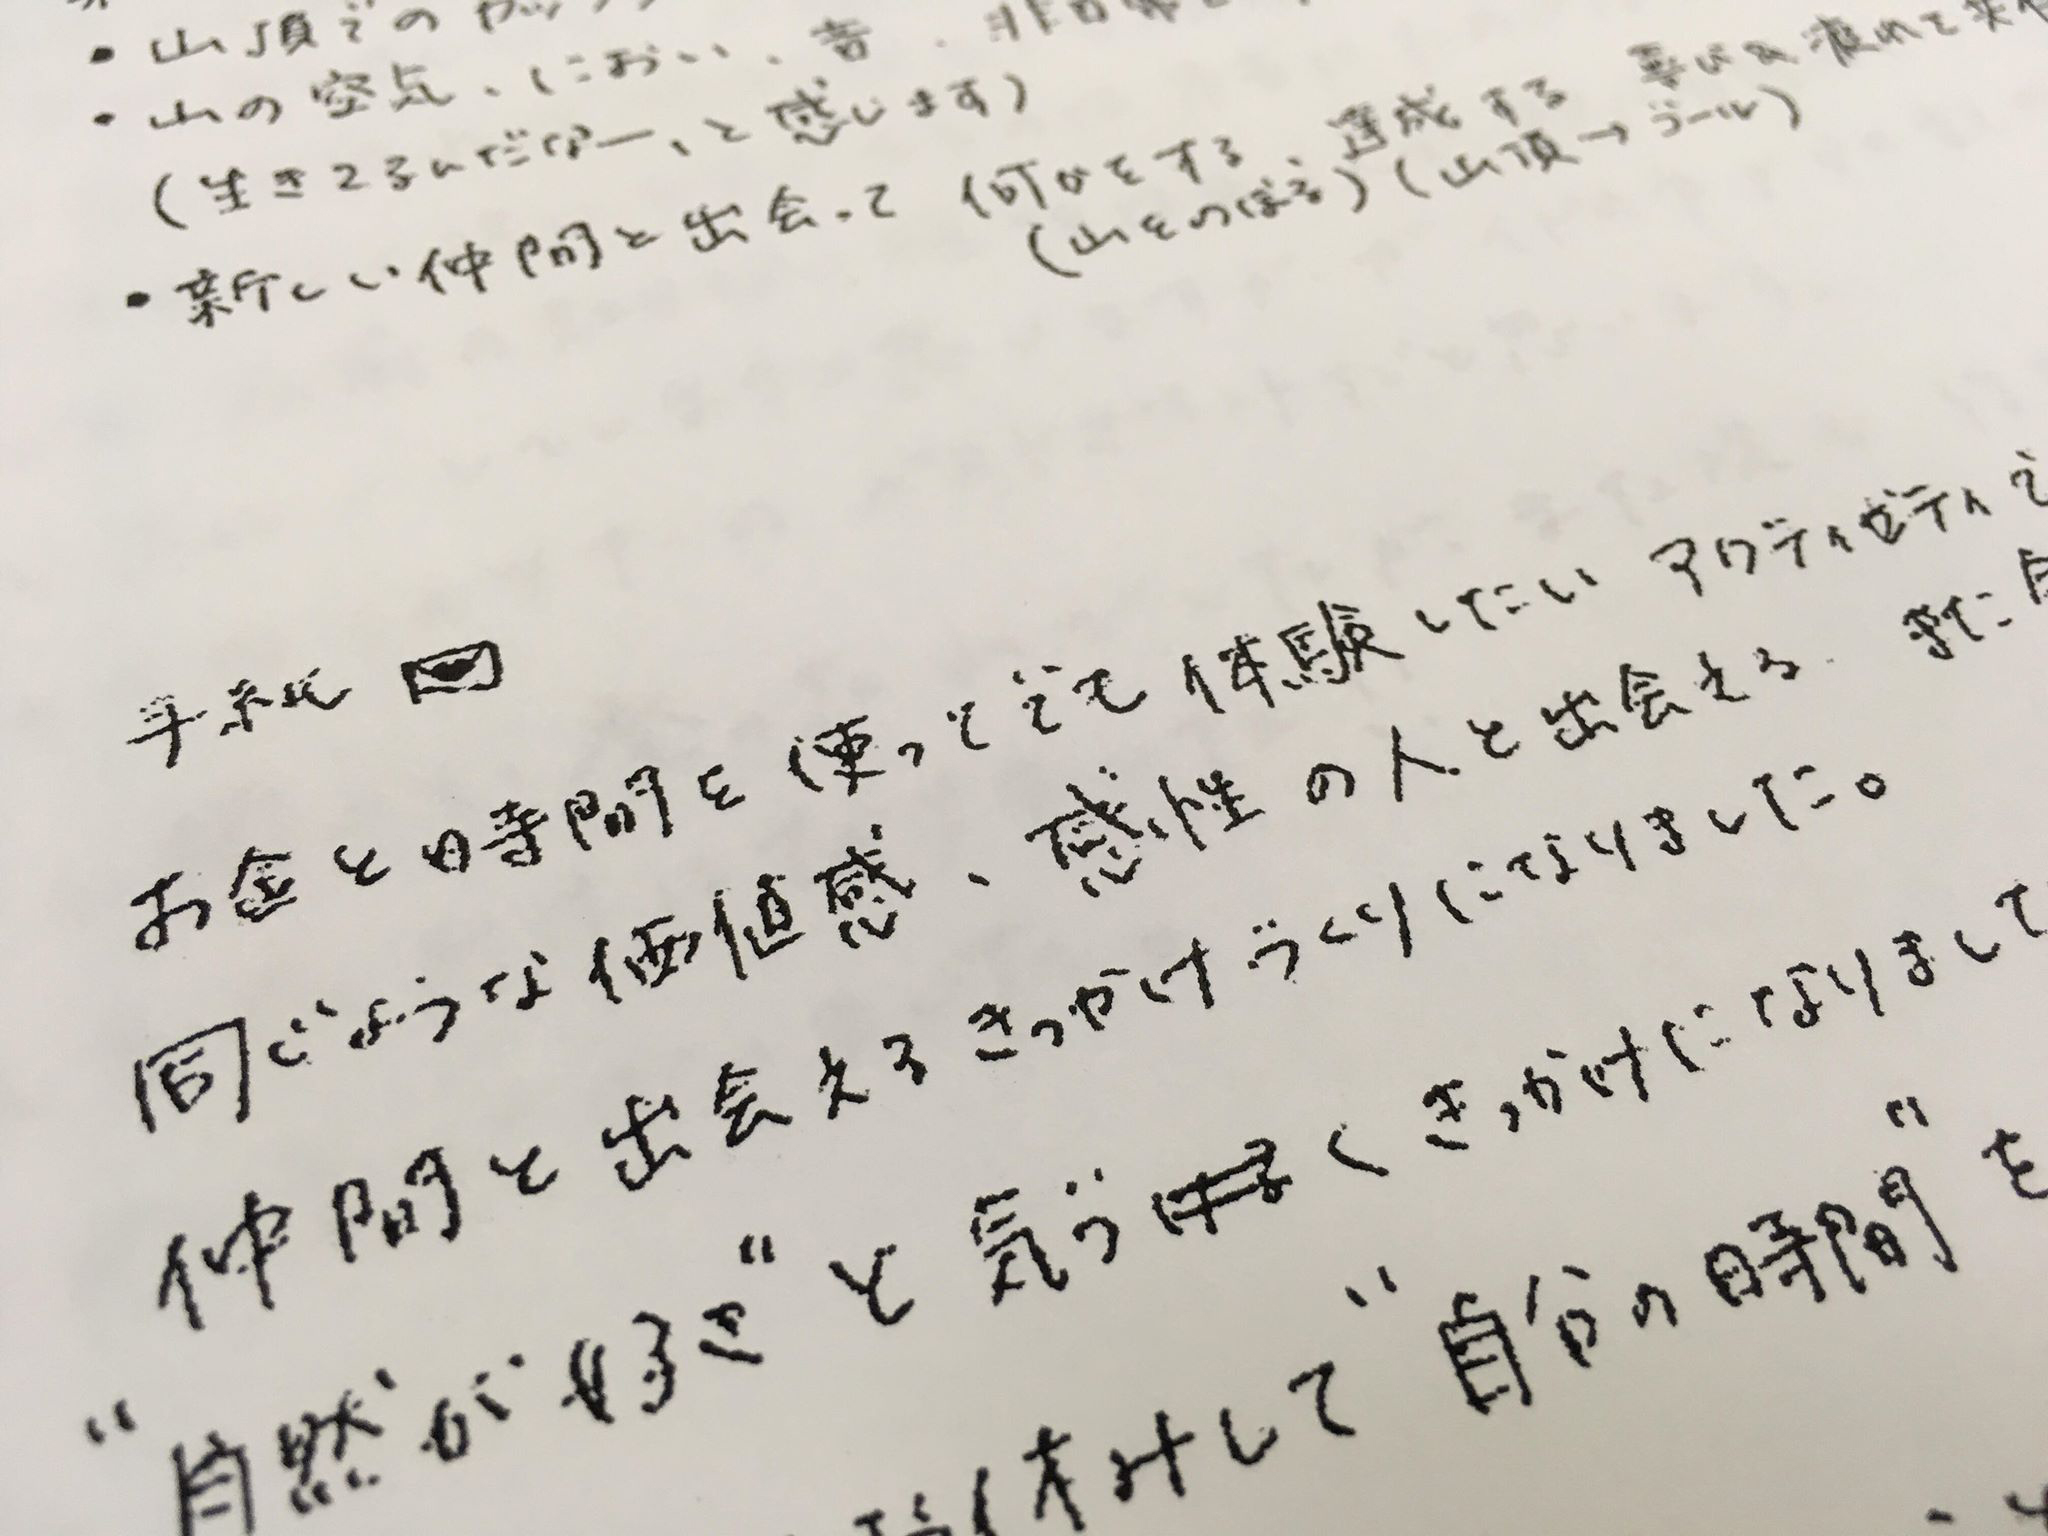 ・山頂でのヤッ
・山の空気、におい、音、非日常
(生きてるんだなー、と感じます)
・新しい仲間と出会って何かをする、達成する喜び
(山をのぼる)(山頂→ゴール)
手紙
お金と時間を使ってでも体験したいアクティビティを
同じような価値感、感性の人と出会える、また
仲間と出会えるきっかけづくりになりました。
"自然が好き"と気づくきっかけになりまして
休みして"自分の時間"を